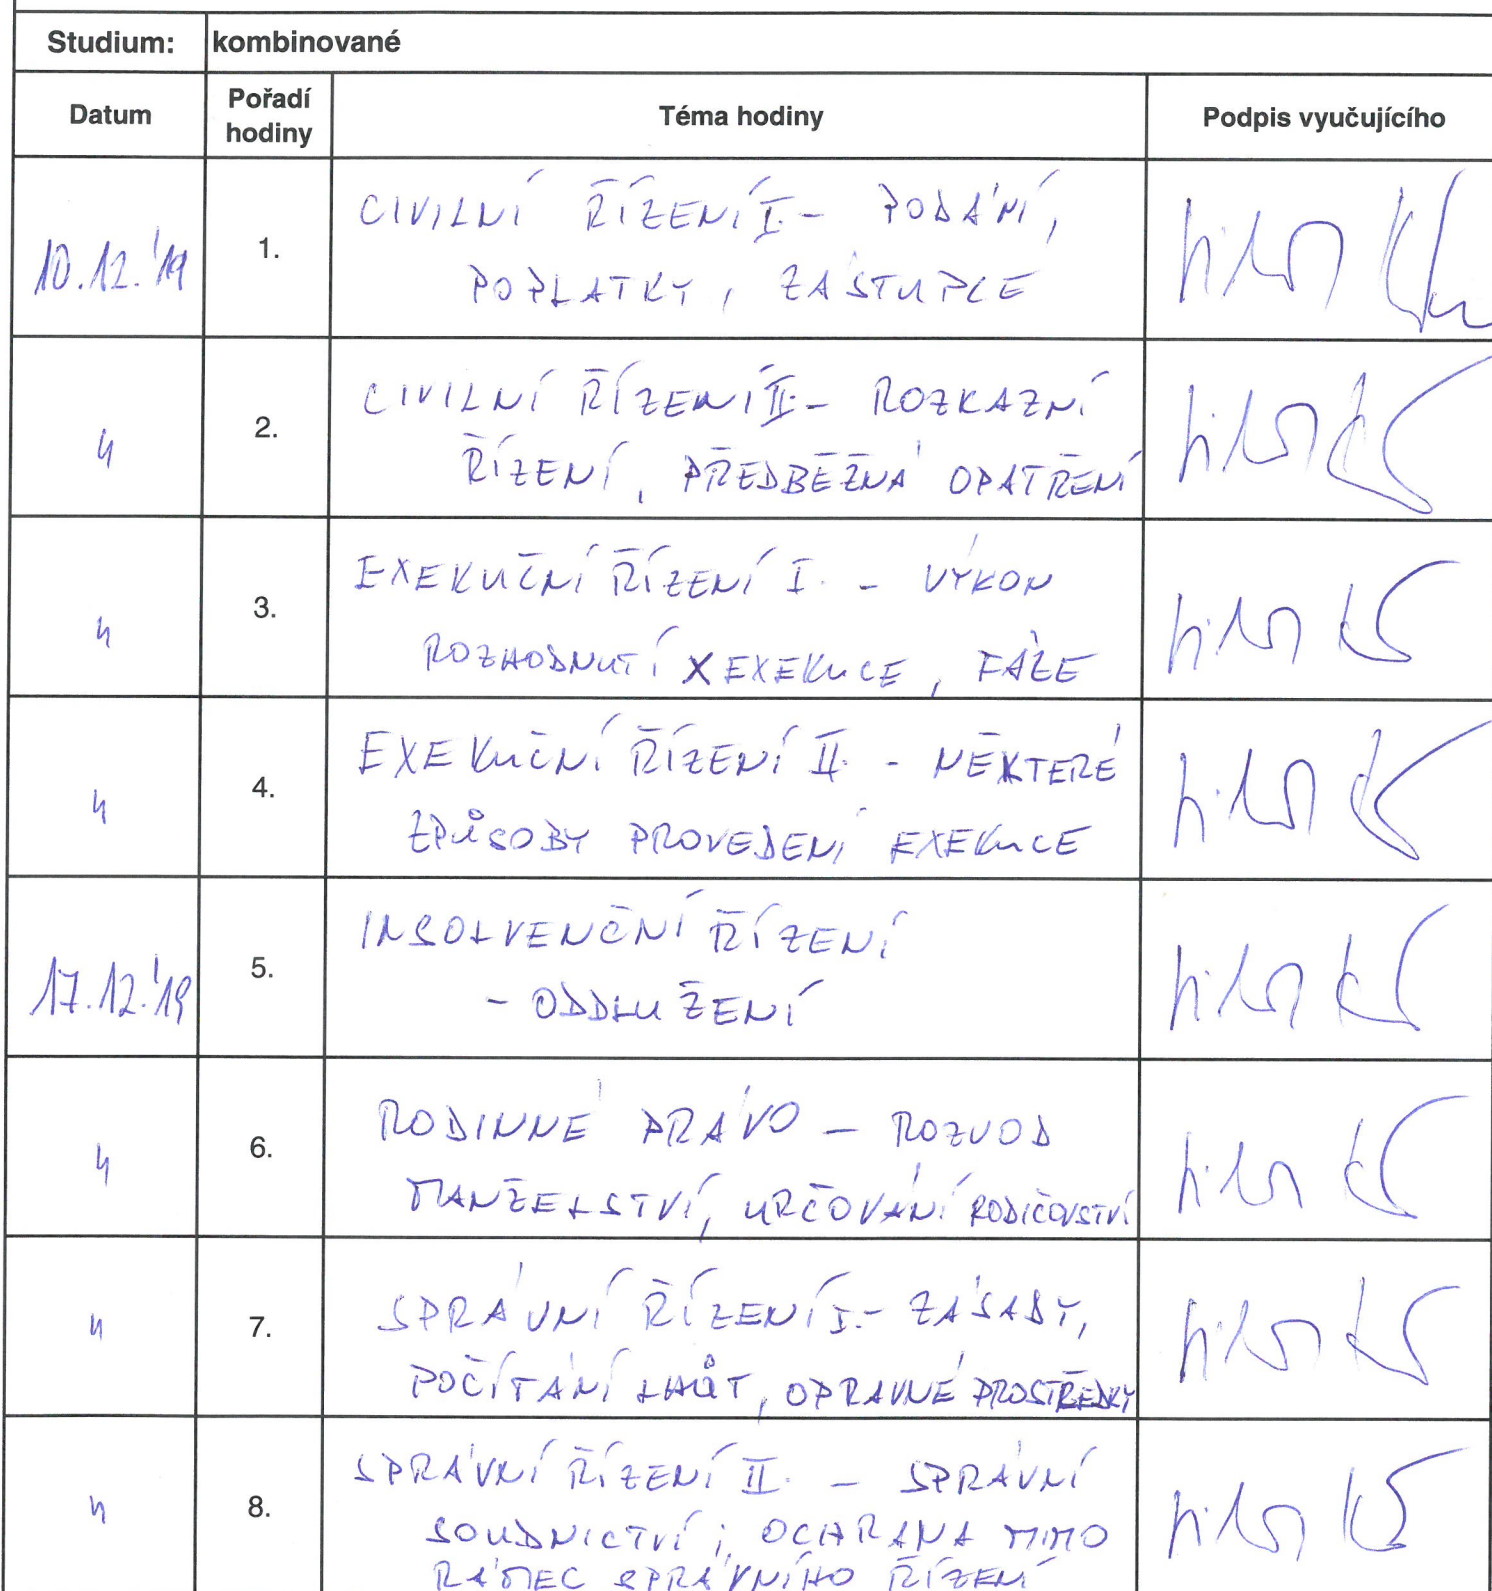 Studium: kombinované
Datum Pořadí hodiny Téma hodiny Podpis vyučujícího
10.12.'19 1. CIVILNÍ ŘÍZENÍ I. - PODÁNÍ,
POPLATKY, ZÁSTUPCE
" 2. CIVILNÍ ŘÍZENÍ II. - ROZKAZNÍ
ŘÍZENÍ, PŘEDBĚŽNÁ OPATŘENÍ
" 3. EXEKUČNÍ ŘÍZENÍ I. - VÝKON
ROZHODNUTÍ X EXEKUCE, FÁZE
" 4. EXEKUČNÍ ŘÍZENÍ II. - NĚKTERÉ
ZPŮSOBY PROVEDENÍ EXEKUCE
17.12.'19 5. INSOLVENČNÍ ŘÍZENÍ
- ODDLUŽENÍ
" 6. RODINNÉ PRÁVO - ROZVOD
MANŽELSTVÍ, URČOVÁNÍ RODIČOVSTVÍ
" 7. SPRÁVNÍ ŘÍZENÍ I. - ZÁSADY,
POČÍTÁNÍ LHŮT, OPRAVNÉ PROSTŘEDKY
" 8. SPRÁVNÍ ŘÍZENÍ II. - SPRÁVNÍ
SOUDNICTVÍ; OCHRANA MIMO
RÁMEC SPRÁVNÍHO ŘÍZENÍ